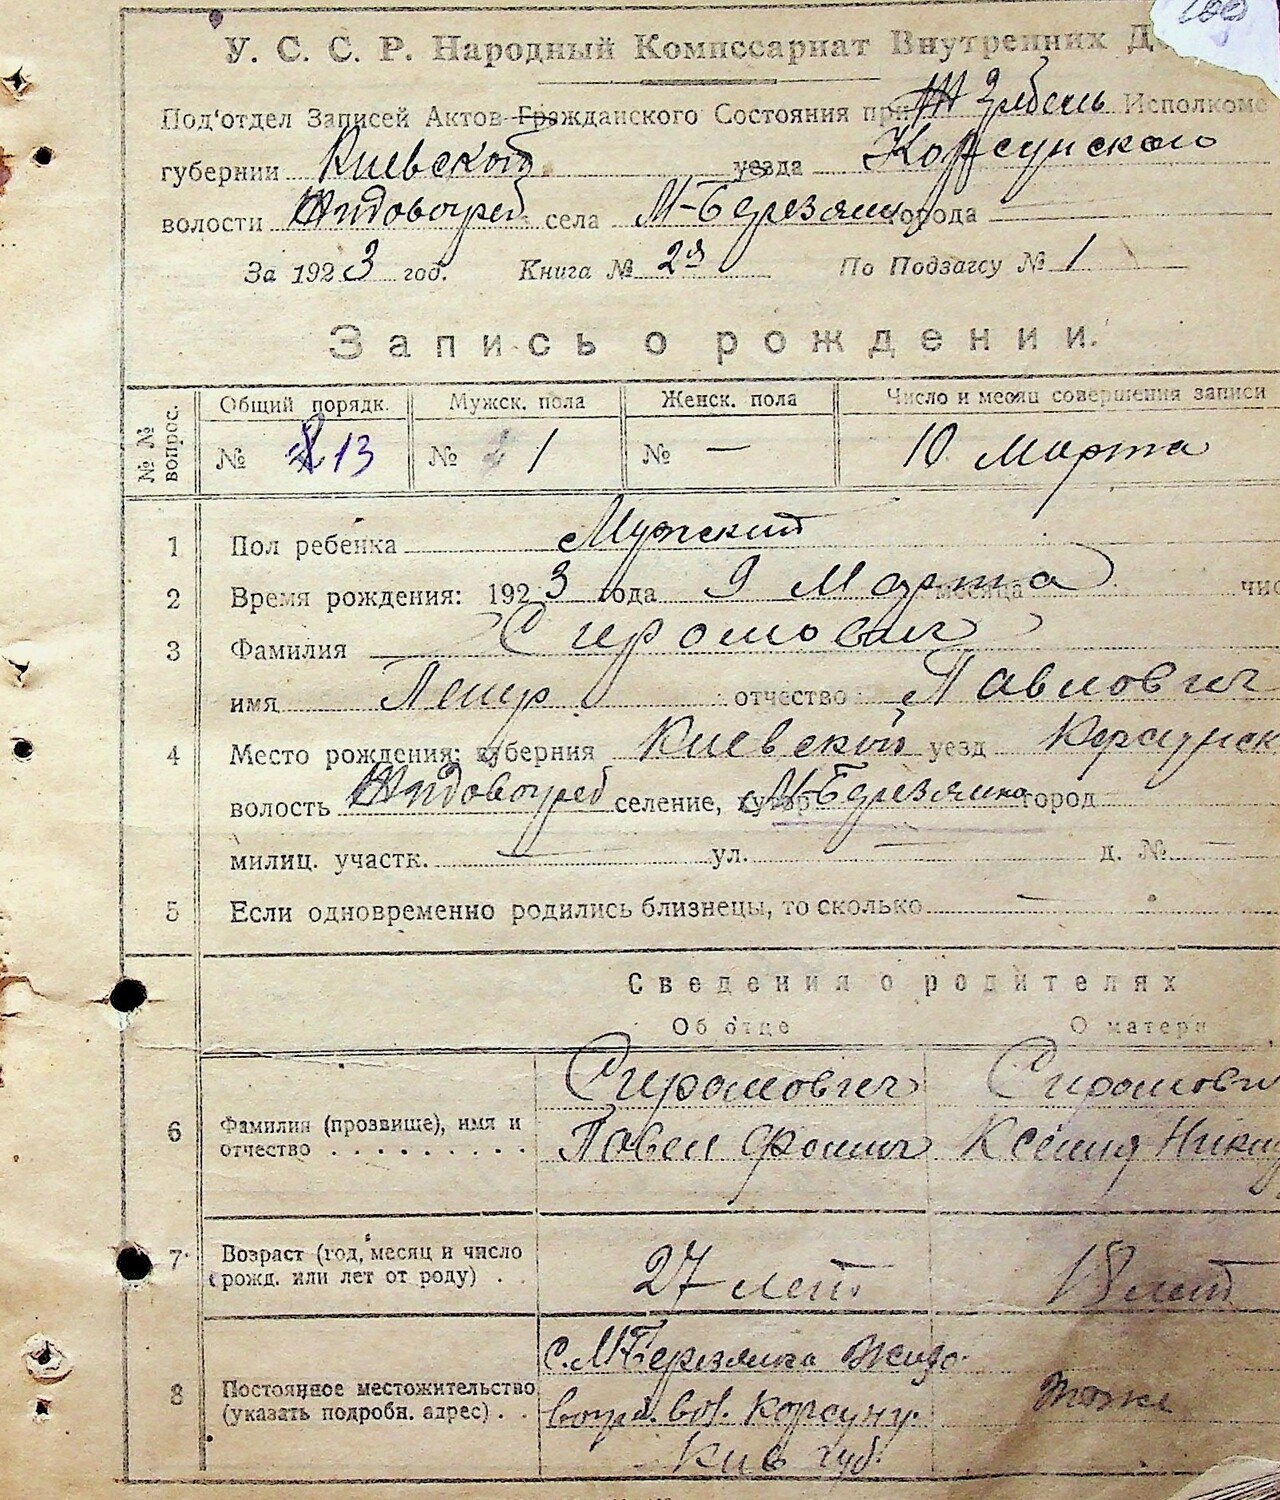 У. С. С. Р. Народный Комиссариат Внутренних
Под'отдел Записей Актов Гражданского Состояния при Исполкоме
губернии Киевской уезда Корсунского
волости села М-Березянка города
За 1923 год. Книга № 2й По Подзагсу № 1
Запись о рождении.
№№ вопрос.
Общий порядк. Мужск. пола Женск. пола Число и месяц совершения записи
№ 13 № 1 № — 10 Марта
1 Пол ребенка Мужский
2 Время рождения: 1923 года 9 Марта месяца
3 Фамилия Сиромович
имя Петр отчество Павлович
4 Место рождения: губерния Киевской уезд Корсунск
волость Жидовогреб селение, хутор М-Березянка город
милиц. участк. — ул. — д. № —
5 Если одновременно родились близнецы, то сколько —
Сведения о родителях
Об отце О матери
6 Фамилия (прозвище), имя и Сиромович Сиромови
отчество . . . . . . . . . . Павел Фомич Ксения
7 Возраст (год, месяц и число
рожд. или лет от роду) . . 27 лет. 18 лет
с. М-Березянка Жидо-
8 Постоянное местожительство
(указать подробн. адрес) . . вогр. вол. Корсун. тоже
Киев губ.